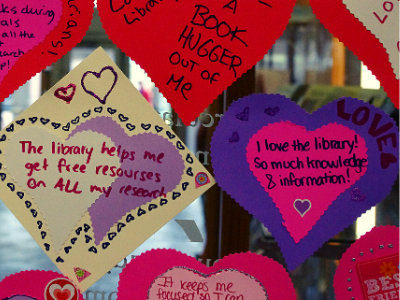 ks during
als
all the
t
search
p!
Library
A
BOOK
HUGGER
OUT OF
Me
LOVE
The library helps me
get free resourses
on ALL my research
I love the library!
So much knowledge
& information!
LOVE
It keeps me
focused so I can
BEST
FRIE